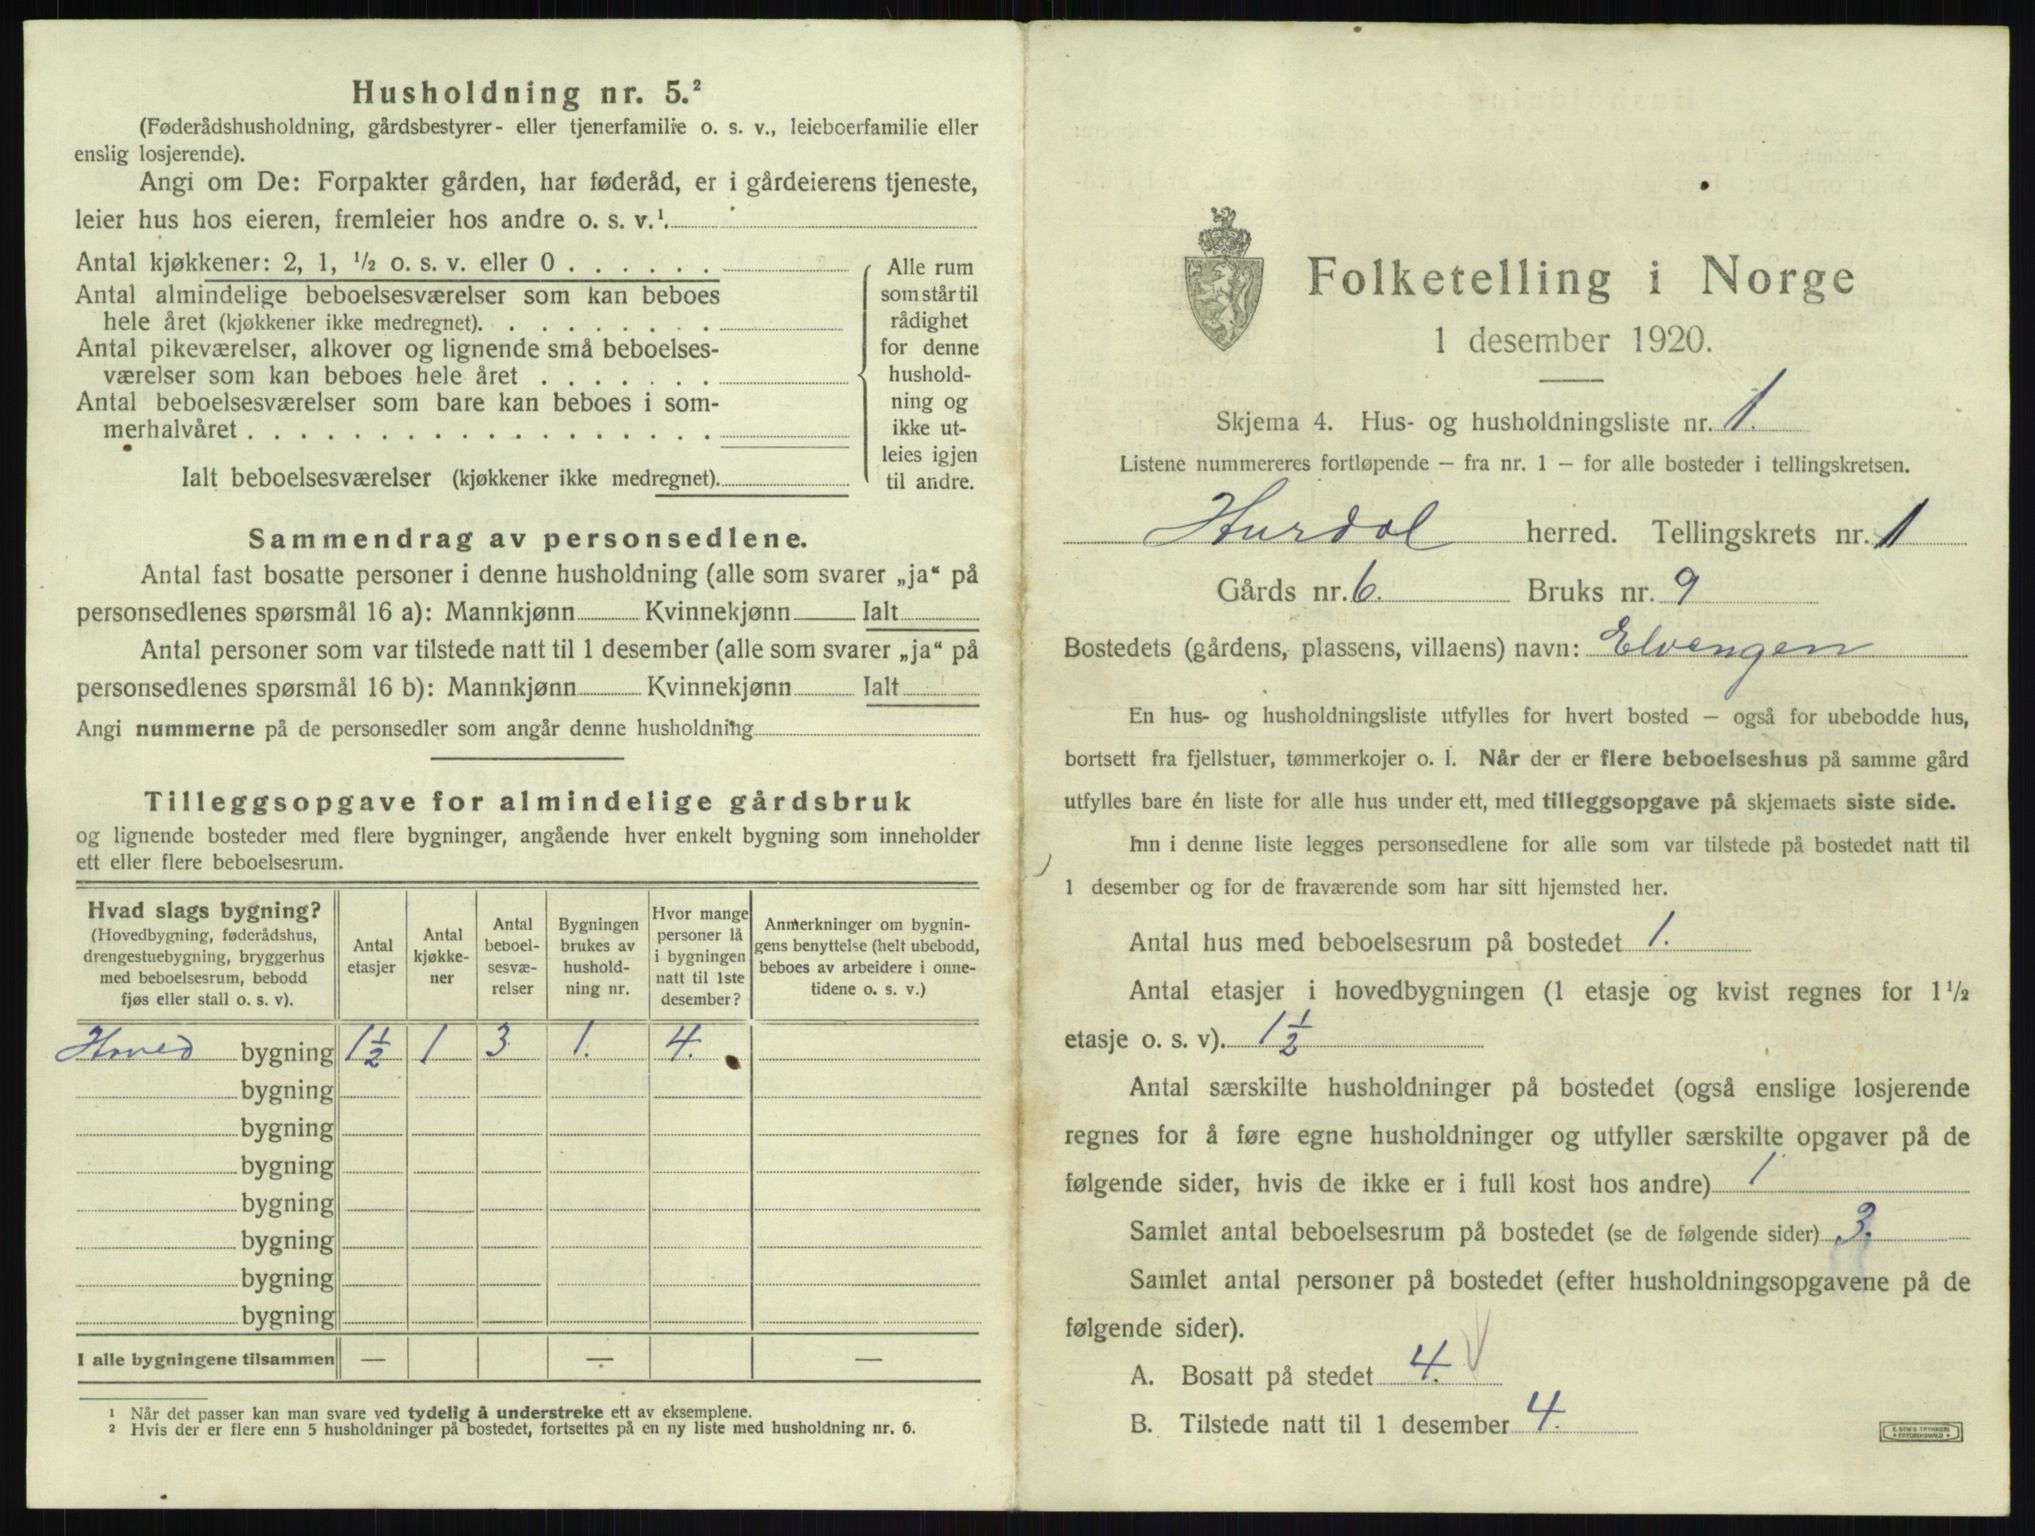 Husholdning nr. 5.²
(Føderådshusholdning, gårdsbestyrer- eller tjenerfamilie o. s. v., leieboerfamilie eller
enslig losjerende).
Angi om De: Forpakter gården, har føderåd, er i gårdeierens tjeneste,
leier hus hos eieren, fremleier hos andre o. s. v.¹.
Antal kjøkkener: 2, 1, ½ o. s. v. eller 0 . . . . . .
Antal almindelige beboelsesværelser som kan beboes
hele året (kjøkkener ikke medregnet). . . . . . . . .
Antal pikeværelser, alkover og lignende små beboelses-
værelser som kan beboes hele året . . . . . . .
Antal beboelsesværelser som bare kan beboes i som-
merhalvåret . . . . . . . . . . . . . . . . . .
Ialt beboelsesværelser (kjøkkener ikke medregnet).
Alle rum
som står til
rådighet
for denne
hushold-
ning og
ikke ut-
leies igjen
til andre.
Sammendrag av personsedlene.
Antal fast bosatte personer i denne husholdning (alle som svarer „ja“ på
personsedlenes spørsmål 16 a): Mannkjønn Kvinnekjønn Ialt
Antal personer som var tilstede natt til 1 desember (alle som svarer „ja“ på
personsedlenes spørsmål 16 b): Mannkjønn Kvinnekjønn Ialt
Angi nummerne på de personsedler som angår denne husholdning
Tilleggsopgave for almindelige gårdsbruk
og lignende bosteder med flere bygninger, angående hver enkelt bygning som inneholder
ett eller flere beboelsesrum.
Hvad slags bygning?
(Hovedbygning, føderådshus,
drengestuebygning, bryggerhus
med beboelsesrum, bebodd
fjøs eller stall o. s. v).
Antal
etasjer
Antal
kjøkke-
ner
Antal
beboel-
sesvæ-
relser
Bygningen
brukes av
hushold-
ning nr.
Hvor mange
personer lå
i bygningen
natt til 1ste
desember?
Anmerkninger om bygnin-
gens benyttelse (helt ubebodd,
beboes av arbeidere i onne-
tidene o. s. v.)
Hoved bygning 1½ 1 3 1. 4.
bygning
bygning
bygning
bygning
bygning
bygning
bygning
I alle bygningene tilsammen — — —
¹ Når det passer kan man svare ved tydelig å understreke ett av eksemplene.
² Hvis der er flere enn 5 husholdninger på bostedet, fortsettes på en ny liste med husholdning nr. 6.
Folketelling i Norge
1 desember 1920.
Skjema 4. Hus- og husholdningsliste nr. 1.
Listene nummereres fortløpende – fra nr. 1 – for alle bosteder i tellingskretsen.
Hurdal herred. Tellingskrets nr. 1
Gårds nr. 6. Bruks nr. 9
Bostedets (gårdens, plassens, villaens) navn: Elvengen
En hus- og husholdningsliste utfylles for hvert bosted – også for ubebodde hus,
bortsett fra fjellstuer, tømmerkojer o. l. Når der er flere beboelseshus på samme gård
utfylles bare én liste for alle hus under ett, med tilleggsopgave på skjemaets siste side.
Inn i denne liste legges personsedlene for alle som var tilstede på bostedet natt til
1 desember og for de fraværende som har sitt hjemsted her.
Antal hus med beboelsesrum på bostedet 1.
Antal etasjer i hovedbygningen (1 etasje og kvist regnes for 1½
etasje o. s. v). 1½
Antal særskilte husholdninger på bostedet (også enslige losjerende
regnes for å føre egne husholdninger og utfyller særskilte opgaver på de
følgende sider, hvis de ikke er i full kost hos andre) 1
Samlet antal beboelsesrum på bostedet (se de følgende sider) 3.
Samlet antal personer på bostedet (efter husholdningsopgavene på de
følgende sider).
A. Bosatt på stedet 4.
B. Tilstede natt til 1 desember 4.
E. SEM'S TRYKKERI
• FREDRIKSHALD •